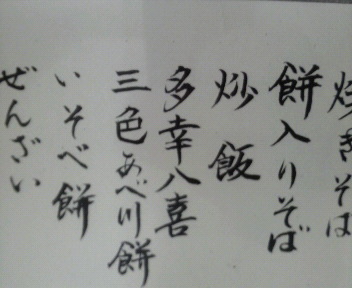 焼きそば
餅入りそば
炒飯
多幸八喜
三色あべ川餅
いそべ餅
ぜんざい